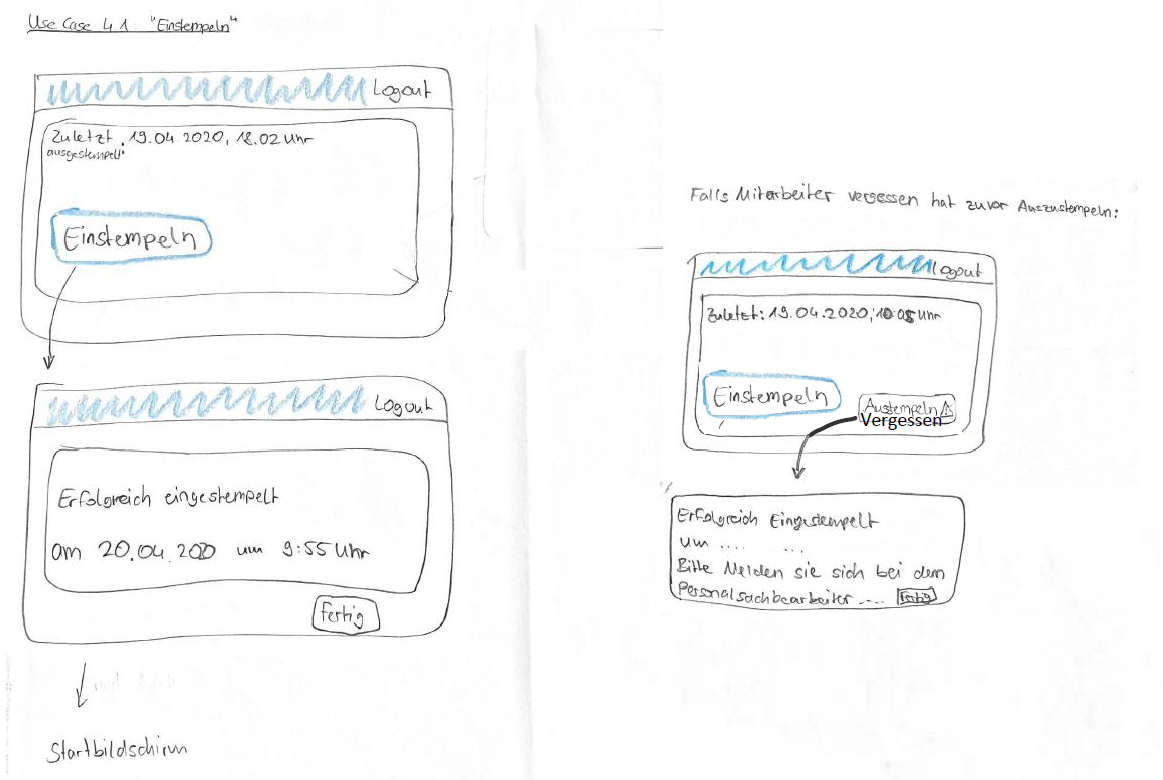 Use Case 4.1: "Einstempeln"
Logout
Zuletzt 19.04 2020, 18.02 Uhr
ausgestempelt:
Einstempeln
Logout
Erfolgreich eingestempelt
am 20.04.2020 um 9:55 Uhr
Fertig
Startbildschirm
Falls Mitarbeiter vergessen hat zuvor Auszustempeln:
Logout
Zuletzt: 19.04.2020, 10:05 Uhr
Einstempeln
Austempeln
Vergessen
Erfolgreich Eingestempelt
um .... ...
Bitte Melden sie sich bei dem
Personalsachbearbeiter ....
Fertig